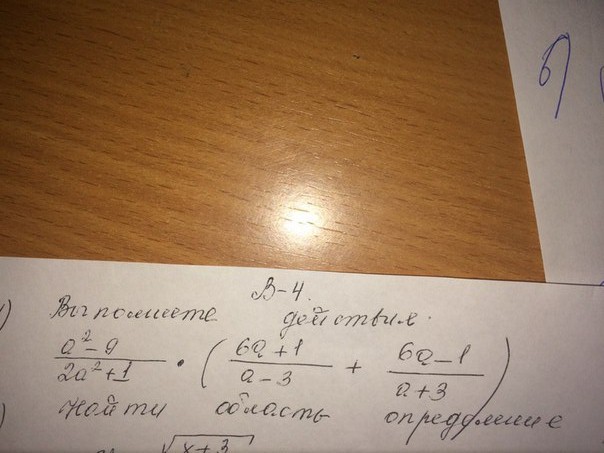 б)
В-4.
) Выполните действия.
a²-9/2a²+1 · (6a+1/a-3 + 6a-1/a+3)
) Найти область определение
√x+3